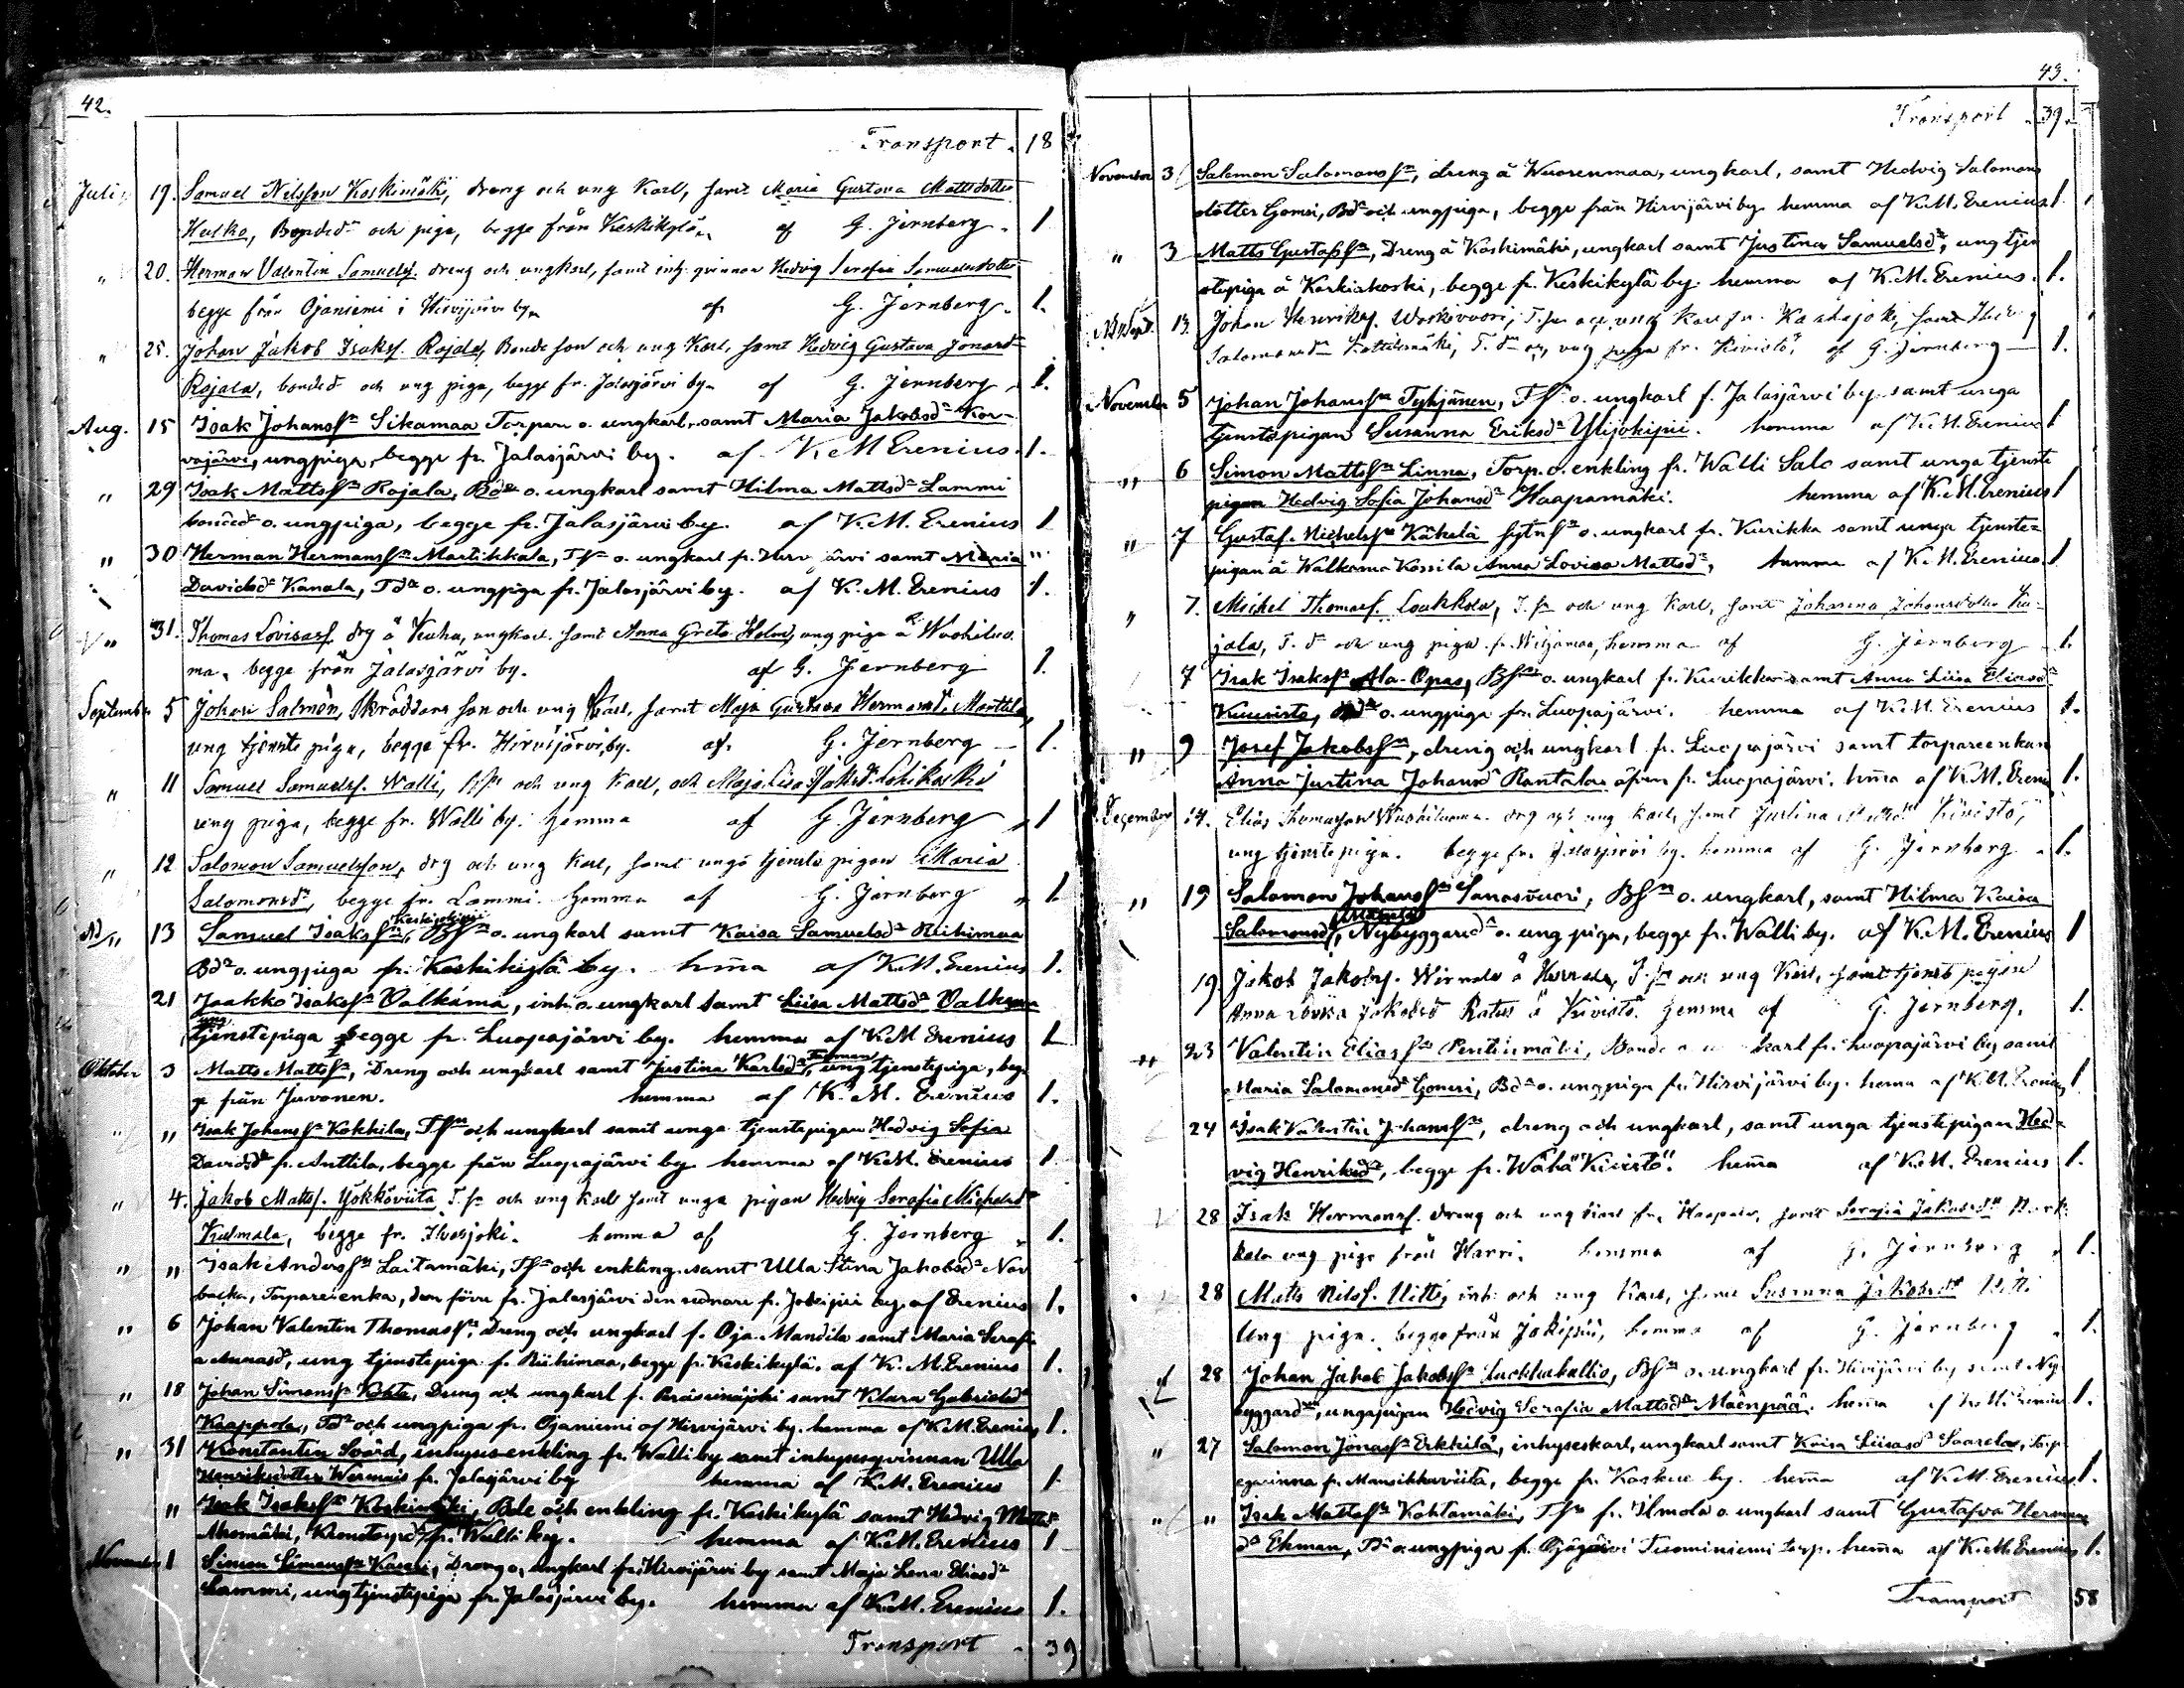 42.
Transport. 18
Juli 19. Samuel Nilsson Koskimäki, dreng och ung Karl, samt Maria Gustava Mattsdotter
Hulko, Bonded. och piga, begge från Keskikylä. af G. Jernberg. 1
" 20. Herman Valentin Samuelss. dreng och ungkarl, samt inh. qvinnan Hedvig Serafia Samuelsdotter
begge från Ojaniemi i Hirvijärvi by. af G. Jernberg. 1.
" 25. Johan Jakob Isakss. Rajala, Bonde son och ung Karl, samt Hedvig Gustava Jonasd
Rajala, bonded och ung piga, begge fr. Jalasjärvi by. af G. Jernberg. 1.
Aug. 15 Isak Johanss Sikamaa Torpare o. ungkarl, samt Maria Jakobsd Kor-
vajärvi, ungpiga, begge fr. Jalasjärvi by. af K M Erenius. 1.
" 29 Isak Mattss Rajala, Bd o. ungkarl samt Hilma Mattsd Lammi
bonded o. ungpiga, begge fr. Jalasjärvi by. af K.M. Erenius 1
" 30 Herman Hermanss Martikkala, Ts o. ungkarl fr. Hirvijärvi samt Maria
Davidsd Kanala, Td o. ungpiga fr. Jalasjärvi by. af K. M. Erenius 1.
" 31. Thomas Lovisass. drg å Kuha, ungkarl. samt Anna Greta Holm, ung piga å
ma, begge från Jalasjärvi by. af G. Jernberg 1.
September 5 Johan Salmén, Skräddare son och ung Karl, samt Maja Gustava Hermansd. Marttila,
ung tjenste piga, begge fr. Hirvijärvi by. af G. Jernberg 1.
" 11 Samuel Samuelss. Walli, och ung Karl, och Maja Lisa Isaksd. Lehikoski
ung piga, begge fr. Walli by. hemma af G. Jernberg " 1
" 12 Salomon Samuelsson, drg och ung Karl, samt unga tjenste pigan Maria
Salomonsd, begge fr. Lammi. hemma af G. Jernberg " 1
" 13 Samuel Isakss Keskijokipii, Bs o. ungkarl samt Kaisa Samuelsd Riihimaa
Bd o. ungpiga fr. Keskikylä by. hma af K.M. Erenius 1.
21 Jaakko Isakss Valkama, inh. o. ungkarl samt Liisa Mattsd Valkama
ung tjenstepiga begge fr. Luopajärvi by. hemma af K.M Erenius 1
Oktober 3 Matts Mattss, Dreng och ungkarl samt Justina Karlsd, ung tjenstepiga, beg-
ge från Juvonen. hemma af K. M. Erenius 1.
" " Isak Johanss Kokkila, Ts och ungkarl samt unga tjenstepigan Hedvig Sofia
Davidsd fr. Anttila, begge från Luopajärvi by hemma af K.M. Erenius 1
" 4. Jakob Mattss. Yökköviita, T.s och ung Karl samt unga pigan Hedvig Serafia Michelsd
Kulmala, begge fr. Ilvesjoki. hemma af G. Jernberg " 1.
" " Isak Anderss Laitamäki, Ts och enkling samt Ulla Stina Jakobsd Nor
backa, Torpareenka, den förre fr. Jalasjärvi den sednare fr. Jokipii by. af Erenius 1.
" 6 Johan Valentin Thomass, dreng och ungkarl f. Oja-Mandila samt Maria Serafi-
a Annasd, ung tjenstepiga f. Riihimaa, begge fr. Keskikylä. af K. M. Erenius 1.
" 18 Johan Simonss Kohta, Dreng och ungkarl f. Peräseinäjoki samt Klara Gabrielsd
Kaappola, Td och ungpiga fr. Ojaniemi af Hirvijärvi by. hemma af K.M. Erenius 1.
" 31 Konstantin Svärd, inhysesenkling fr. Walli by samt inhysesqvinnan Ulla
Henriksdotter Wermais fr. Jalasjärvi by hemma af K.M. Erenius 1
" Isak Isakss Koskimäki, Bde och enkling fr. Keskikylä samt Hedvig Mattsd
Ahomäki, fr. Walli by. hemma af K.M. Erenius 1
November 1 Simon Simonss, Dreng o. ungkarl fr. Hirvijärvi by samt Maja Lena Eliasd
Lammi, ung tjenstepiga fr. Jalasjärvi by. hemma af K.M. Erenius 1.
Transport 39
43.
Transport 39.
November 3 Salomon Salomonss, dreng å Wuorenmaa, ungkarl, samt Hedvig Salomons
dotter Gomsi, Bd och ungpiga, begge från Hirvijärvi by. hemma af K.M. Erenius 1.
" 3 Matts Gustafss, Dreng å Koskimäki, ungkarl samt Justina Samuelsd, ung tjen
stepiga å Korkiakoski, begge fr. Keskikylä by. hemma af K.M. Erenius. 1.
13. Johan Henrikss. Wuokovuori, T.s och ung Karl fr. samt Hedvig
Salomonsd T.d ung piga fr. Kivistö. af G. Jernberg 1.
November 5 Johan Johanss Tyhjänen, Ts o. ungkarl f. Jalasjärvi by samt unga
tjenstepigan Susanna Eriksd Ylijokipii. hemma af K.M. Erenius 1
" 6 Simon Mattss Linna, Torp. o. enkling fr. Walli Salo samt unga tjenste
pigan Hedvig Sofia Johansd Haapamäki. hemma af K.M. Erenius 1
" 7 Gustaf Michelss Kähelä o. ungkarl fr. Kurikka samt unga tjenste-
pigan å Walkama Kossila Anna Lovisa Mattsd, hemma af K.M. Erenius. 1
" 7. Michel Thomass. Loukkola, T.s och ung Karl, samt Johanna Johansdotter
jala, T.d och ung piga fr. hemma af G. Jernberg 1.
7 Isak Isakss Ala-Opas, Bs o. ungkarl fr. Kurikka samt Anna Liisa Eliasd
o. ungpiga fr. Luopajärvi. hemma af K.M. Erenius 1.
" 9 Josef Jakobss, dreng och ungkarl fr. Luopajärvi samt torpareenkan
Anna Justina Johansd Rantala äfven fr. Luopajärvi. hma af K.M. Erenius 1.
December 14. Elias Thomasson drg och ung Karl, samt Justina Kivistö,
ung tjenstepiga. begge fr. Jalasjärvi by. hemma af G. Jernberg 1.
" 19 Salomon Johanss Sanasvuori, Bs o. ungkarl, samt Hilma Kaisa
Salomonsd, Nybyggared o. ung piga, begge fr. Walli by. af K.M. Erenius 1
19. Jakob Jakobss. å T.s och ung Karl, samt tjenste pigan
Anna Lovisa Jakobsd Ratus å Kivistö. hemma af G. Jernberg. 1.
" 23 Valentin Eliass Pentinmäki, Bonde ungkarl fr. Luopajärvi by samt
Maria Salomonsd Gomsi, Bd o. ungpiga fr. Hirvijärvi by. hemma af K.M. Erenius 1
24 Isak Valentin Johanss, dreng och ungkarl, samt unga tjenstepigan Hed-
vig Henriksd, begge fr. Wähä Kivistö. hma af K.M. Erenius 1.
28 Isak Hermanss. dreng och ung Karl fr. samt Serafia Jakobsd
kola ung piga från Harri. hemma af G. Jernberg 1.
28 Matts Nilss. Hitti, inh. och ung Karl, samt Susanna Jakobsd
Ung piga. begge från Jokipii, hemma af G. Jernberg 1.
28 Johan Jakob Jakobss Luckkakallio, Bs o. ungkarl fr. Hirvijärvi by samt Ny-
byggared, unga pigan Hedvig Serafia Mattsd Mäenpää. hemma af K.M. Erenius 1.
" 27 Salomon Jonass Erkkilä, inhyseskarl, ungkarl samt Kaisa Liisasd Saarela,
eqvinna fr. Mansikkaviita, begge fr. Koskue by. hema af K.M. Erenius 1.
" " Isak Mattss Kohtamäki, Ts fr. Ilmola o. ungkarl samt Gustafva Hermans
d Ekman, Td o. ungpiga fr. Tuominiemi torp. hema af K.M. Erenius 1.
Transport 58